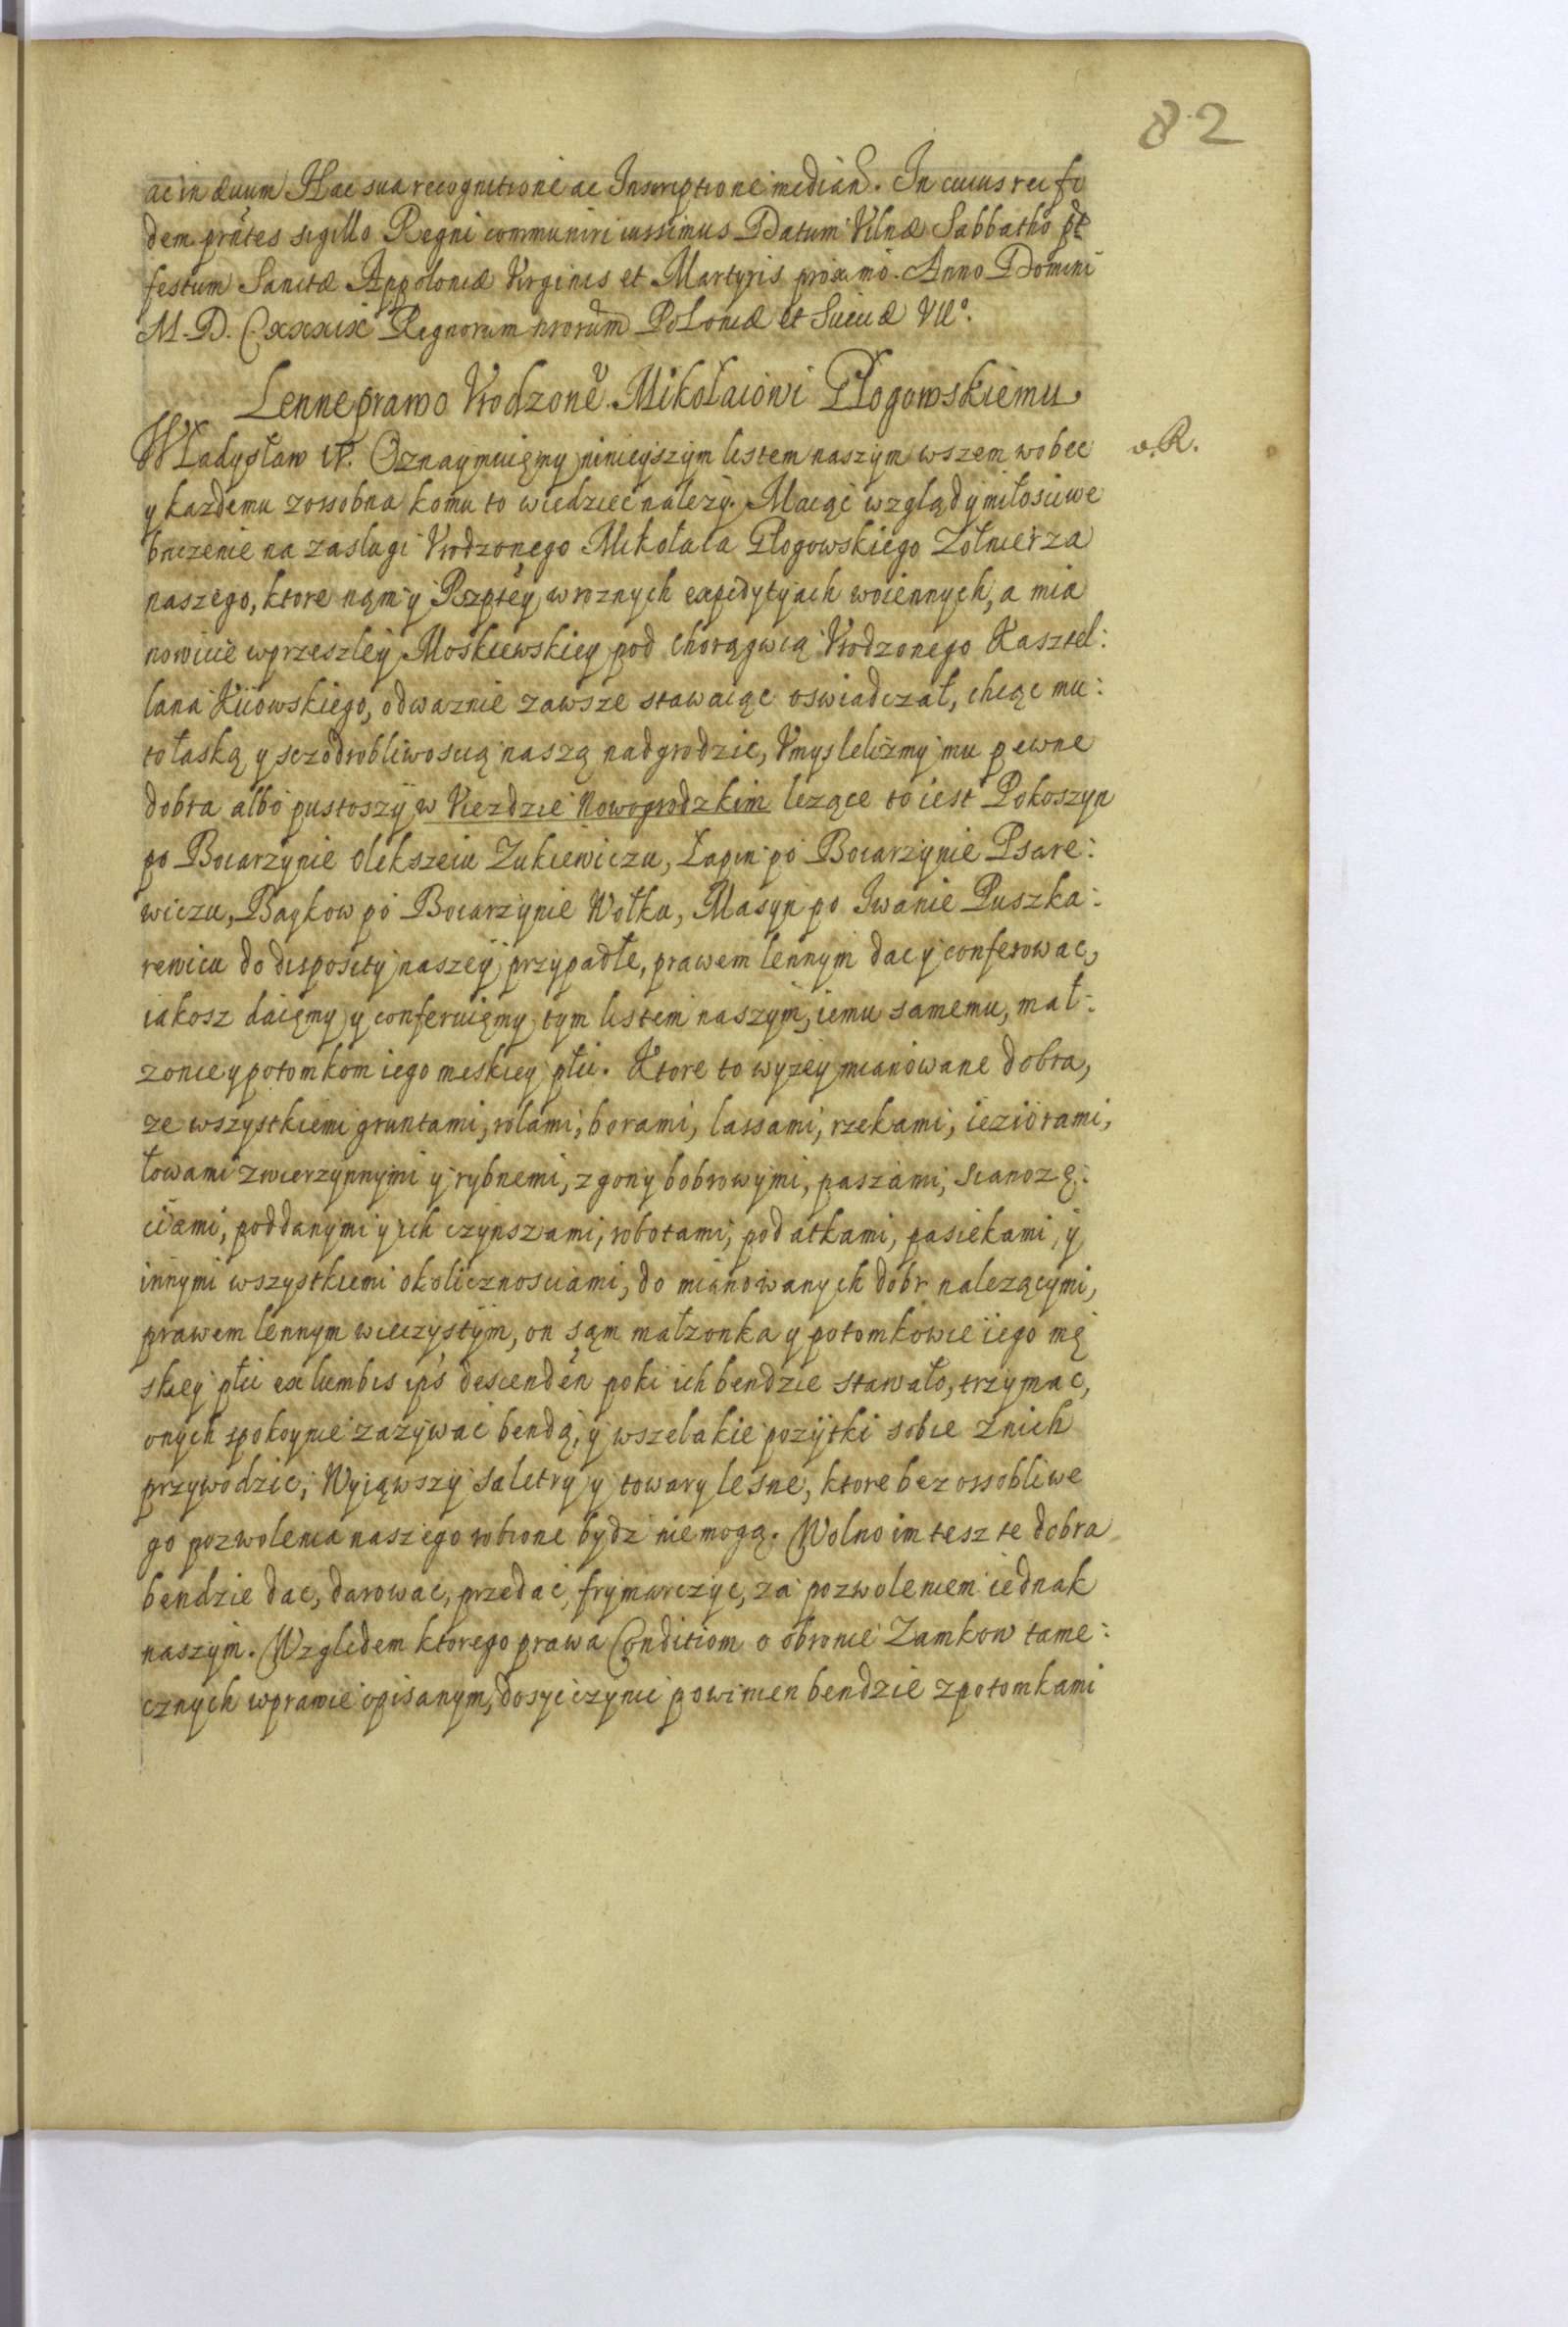 82
ac in ævum Hac sua recognitione ac Inscriptione median̄. In cuius rei fi
dem prn̄tes sigillo Regni communiri iussimus Datum Vilnæ Sabbatho pt
festum Sanctæ Appoloniæ Virginis et Martyris proximo. Anno Domini
M.D.Cxxxix Regnorum nrorum Poloniæ et Sueciæ VIIº.
Lenne prawo Vrodzonev̆ Mikołaiowi Głogowskiemu.
Władysław IV. Oznaymuięmy ninieyszym listem naszym wszem wobec
v.R.
y kazdemu zossobna komu to wiedziec nalezy. Maiąc wzgląd y miłosciwe
baczenie na zaslugi Vrodzonego Mikołaia Głogowskiego Zołnierza
naszego, ktore nąm y Rzptey w roznych expedytyach woiennych, a mia
nowicie wprzeszley Moskiewskiey pod chorągwią Vrodzonego Kasztel:
lana Kiiowskiego, odwaznie zawsze stawaiąc oswiadczał, chcąc mu:
to łaską y sczodrobliwoscią naszą nadgrodzic, Vmyslelismy mu pewne
dobra albo pustoszy w Viezdzie Nowogrodzkim lezące to iest Pokoszyn
po Boiarzynie Olekszeiu Zukiewiczu, Łapin po Boiarzynie Psare:
wiczu, Baykow po Boiarzynie Wołku, Masyn po Iwanie Puszka:
rewicu do disposity naszey przypadłe, prawem lennym dac y conferowac,
iakosz daięmy y conferuięmy tym listem naszym, iemu samemu, mał:
zonce y potomkom iego meskiey płci. Ktore to wyzey mianowane dobra,
ze wszystkiemi gruntami, rolami, borami, lassami, rzekami, ieziorami,
łowami zwierzynnymi y rybnemi, z gony bobrowymi, paszami, sianozę:
ciami, poddanymi y ich czynszami, robotami, podatkami, pasiekami, y
innymi wszystkiemi okolicznosciami, do mianowanych dobr nalezącymi,
prawem lennym wieczystym, on sąm małzonka y potomkowie iego mę
skiey płci ex lumbis ips̄ descendeñ poki ich bendzie stawało, trzymac,
onych spokoynie zazywac bendą, y wszelakie pozytki sobie z nich
przywodzic, Wyiąwszy saletry y towary lesne, ktore bez ossobliwe
go pozwolenia naszego robione bydz nie mogą. Wolno im tesz te dobra
bendzie dac, darowac, przedac, frymarczyc, za pozwoleniem iednak
naszym. Wzgledem ktorego prawa Conditiom o obronie Zamkow tame:
cznych wprawie opisanym, dosyc czynic powinien bendzie z potomkami